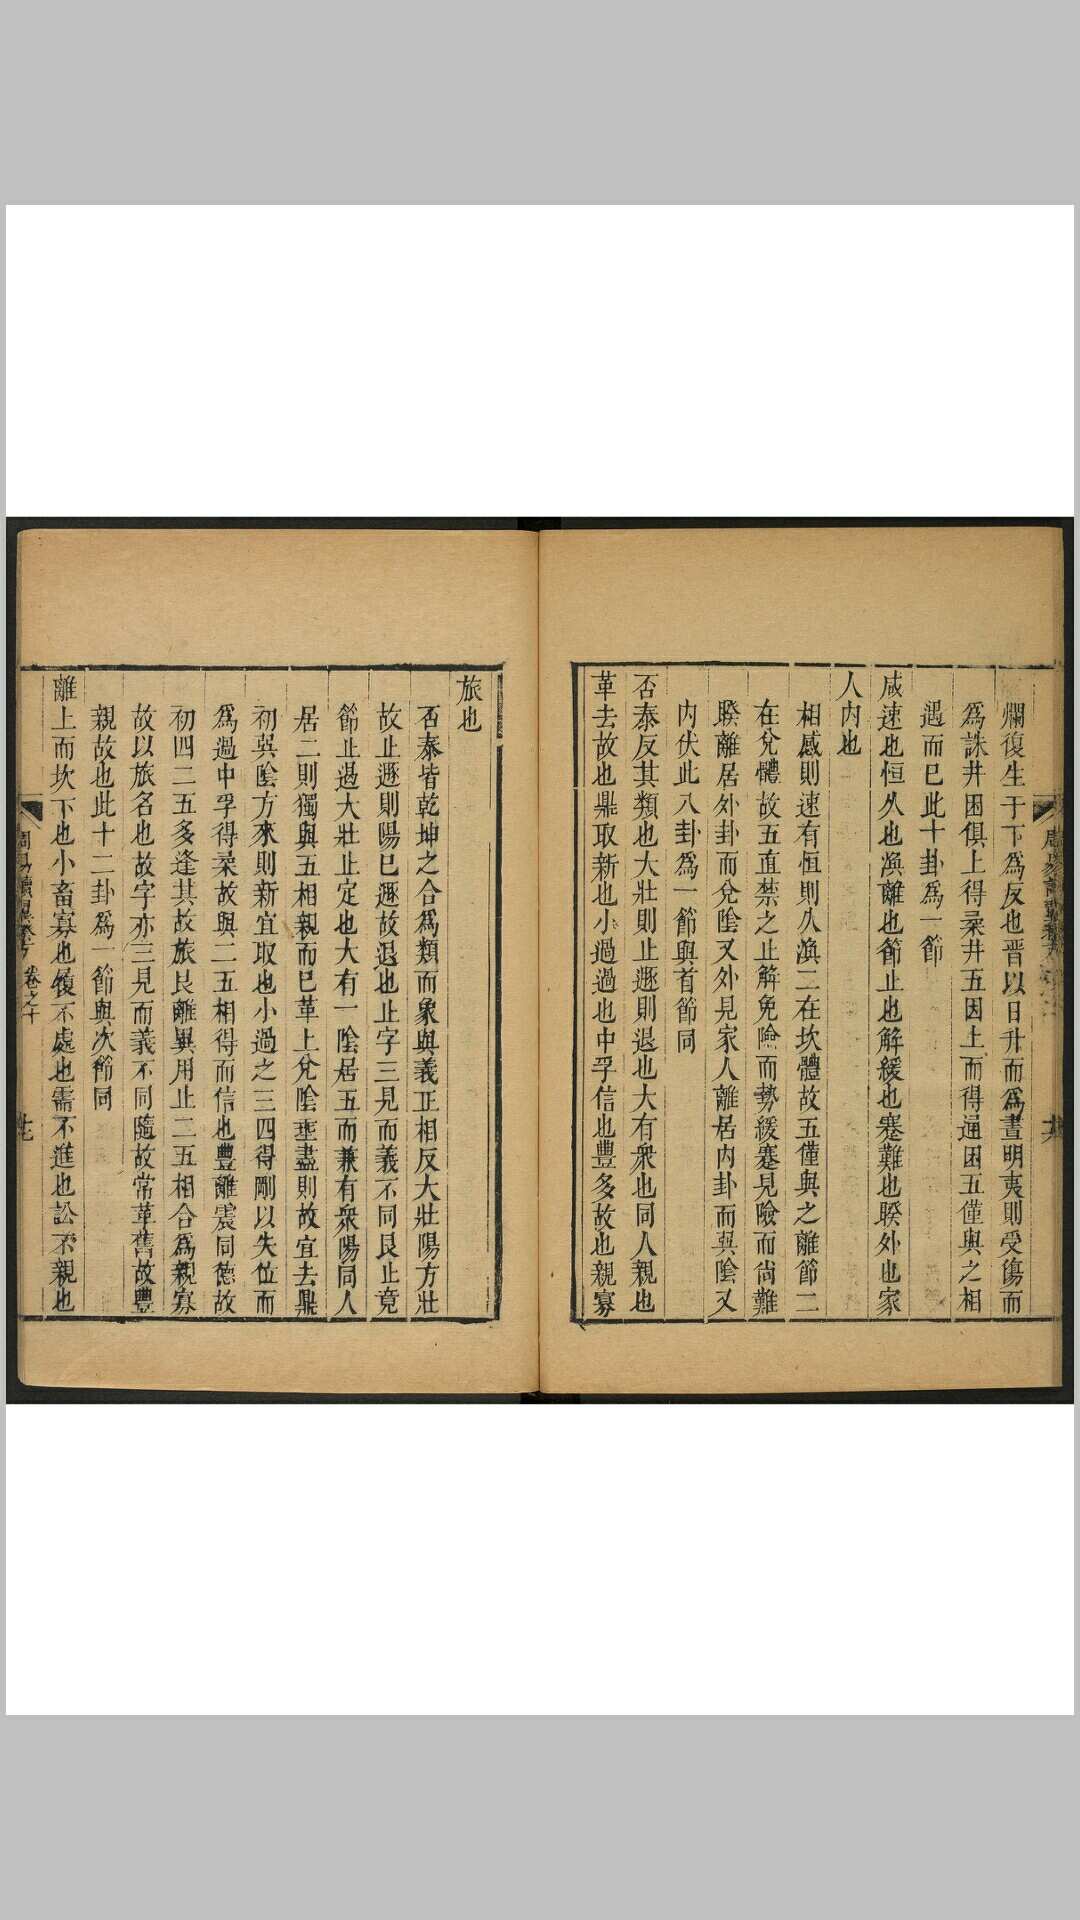 爛復生于下爲反也晋以日升而爲晝明夷則受傷而
爲誅井困俱上得柔井五因上而得通困五僅與之相
遇而已此十卦爲一節
咸速也恒久也渙離也節止也解緩也蹇難也睽外也家
人内也
相感則速有恒則久渙二在坎體故五僅與之離節二
在兌體故五直禁之止解免險而勢緩蹇見險而尚難
睽離居外卦而兌陰又外見家人離居内卦而巽陰又
内伏此八卦爲一節與首節同
否泰反其類也大壯則止遯則退也大有衆也同人親也
革去故也鼎取新也小過過也中孚信也豐多故也親寡
旅也
否泰皆乾坤之合爲類而象與義正相反大壯陽方壯
故止遯則陽已遯故退也止字三見而義不同艮止竟
節止過大壯止定也大有一陰居五而兼有衆陽同人
居二則獨與五相親而已革上兌陰垂盡則故宜去鼎
初巽陰方來則新宜取也小過之三四得剛以失位而
爲過中孚得柔故與二五相得而信也豐離震同德故
初四二五多逢其故旅艮離異用止二五相合爲親寡
故以旅名也故字亦三見而義不同隨故常革舊故豐
親故也此十二卦爲一節與次節同
離上而坎下也小畜寡也履不處也需不進也訟不親也
卷之十